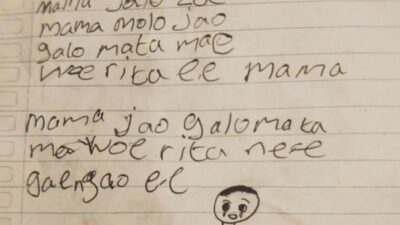 mama molo jao
galo mata mae
woe rita e.e mama
mama jao galo mata
woe rita ne-e
gaengao e-e